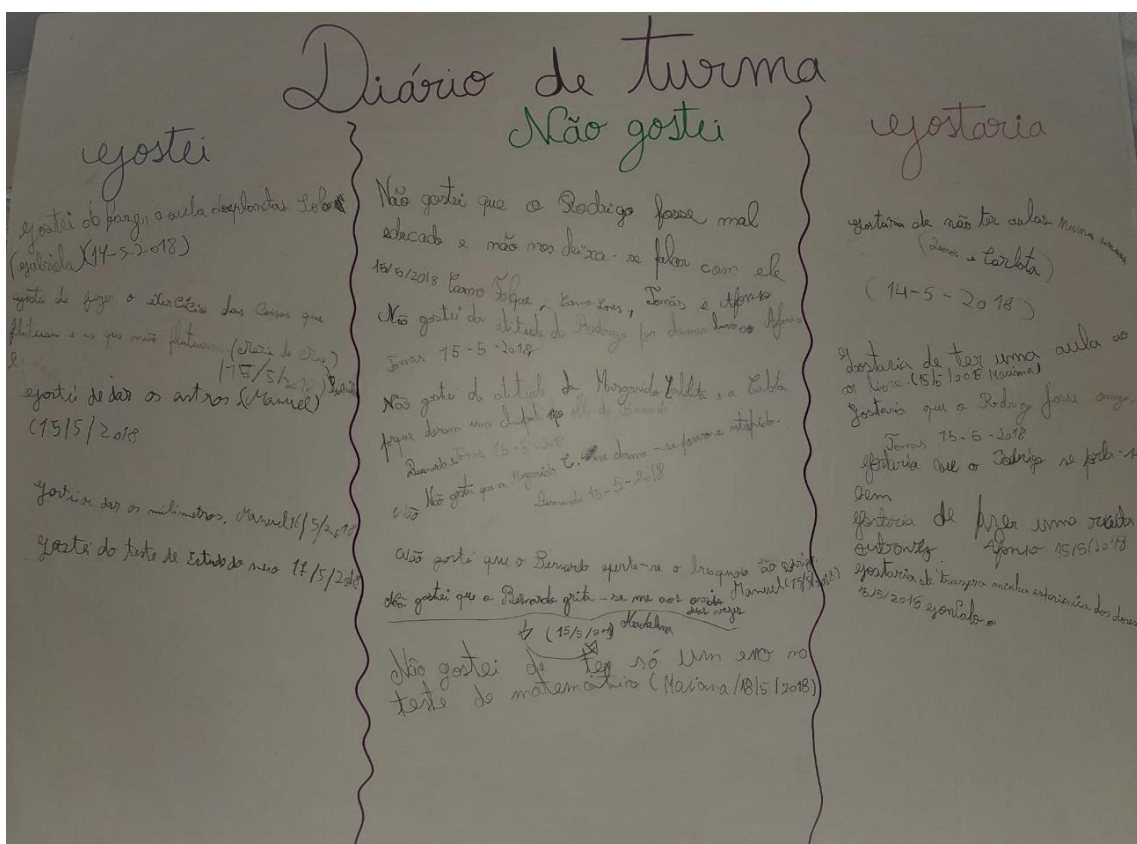 Diário de turma
Gostei
Gostei do fazer a aula
(Gabriela) (14-5-2018)
gostei de fazer o exercício das coisas que
flutuam e as que não flutuam
15/5/2018
gostei de dar os astros (Manuel)
(15/5/2018
dar os milimetros. Manuel 16/5/2018
gostei do teste de Estudo do meio 17/5/2018
Não gostei
Não gostei que o Rodrigo fosse mal
educado e não nos deixa-se falar com ele
15/5/2018 Tomás e Afonso
Não gostei da atitude do Rodrigo por
Tomás 15-5-2018
Não gostei da atitude da e a
porque deram uma
Bernardo Tomás 15-5-2018
Não gostei que a Margarida C. me chama-se parvo e estupido.
Bernardo 15-5-2018
Não gostei que o Bernardo aperta-se o ao
Manuel (15/5/2018)
Não gostei que o Bernardo grita-se me aos ouvidos
duas vezes
(15/5/201 Madalena
Não gostei de ter só um erro no
teste de matemática (Mariana/18/5/2018)
Gostaria
gostaria de não ter aulas numa semana
e Carlota)
(14-5-2018)
Gostaria de ter uma aula ao
ar livre. (15/5/2018 Mariana)
Gostaria que o Rodrigo fosse amigo.
Tomás 15-5-2018
Gostaria que o Rodrigo se porta-se
bem
Gostaria de fazer uma
Afonso 15/5/2018
Gostaria de minha dos
15/5/2018 Gonçalo